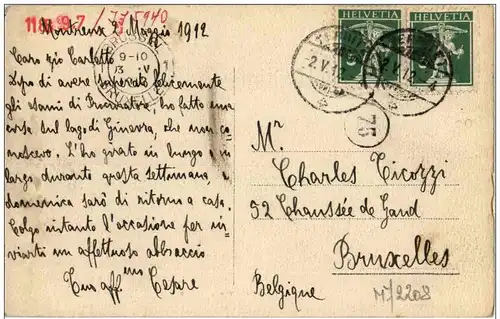 1189 7 / 775940
HELVETIA HELVETIA
Montreux 2 Maggio 1912
9-10
13 V
2.V.12
2.V.12
75
Caro zio Carletto
Dopo di avere superati felicemente
gli esami di Procuratore, ho fatto una
corsa sul lago di Ginevra, che non co-
noscevo. L'ho girato in lungo e in
largo durante questa settimana;
domenica sarò di ritorno a casa.
Colgo intanto l'occasione per in-
viarti un affettuoso abbraccio
Tuo aff. Cesare
Mr
Charles Ticozzi
52 Chaussée de Gand
Bruxelles
Belgique
M/2208